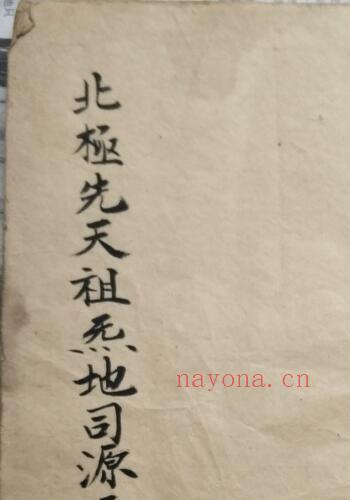 北極先天祖炁地司源
nayona.cn